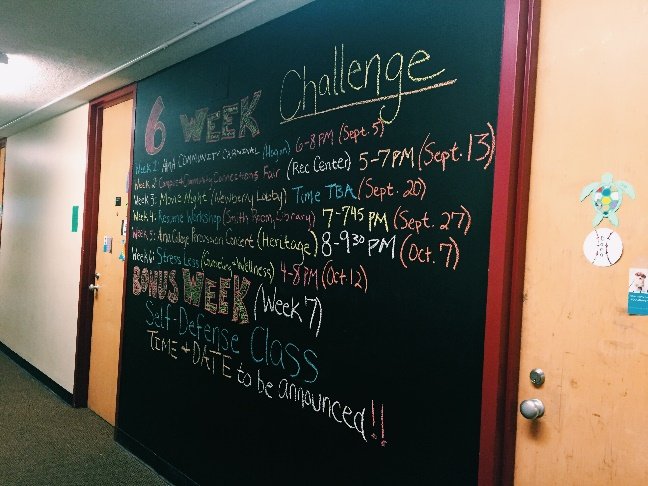 6 WEEK Challenge
Week 1: Alma COMMUNITY CARNIVAL (Hogan) 6-8 PM (Sept. 5)
Week 2: Campus + Community Connections Fair (Rec Center) 5-7PM (Sept. 13)
Week 3: Movie Night (Newberry Lobby) Time TBA (Sept. 20)
Week 4: Resume Workshop (Smith Room, Library) 7-745 PM (Sept. 27)
Week 5: Alma College Percussion Concert (Heritage) 8-930 PM (Oct. 7)
Week 6: Stress Less (Counseling + Wellness) 4-8 PM (Oct. 12)
BONUS WEEK (Week 7)
Self-Defense Class
TIME + DATE to be announced!!